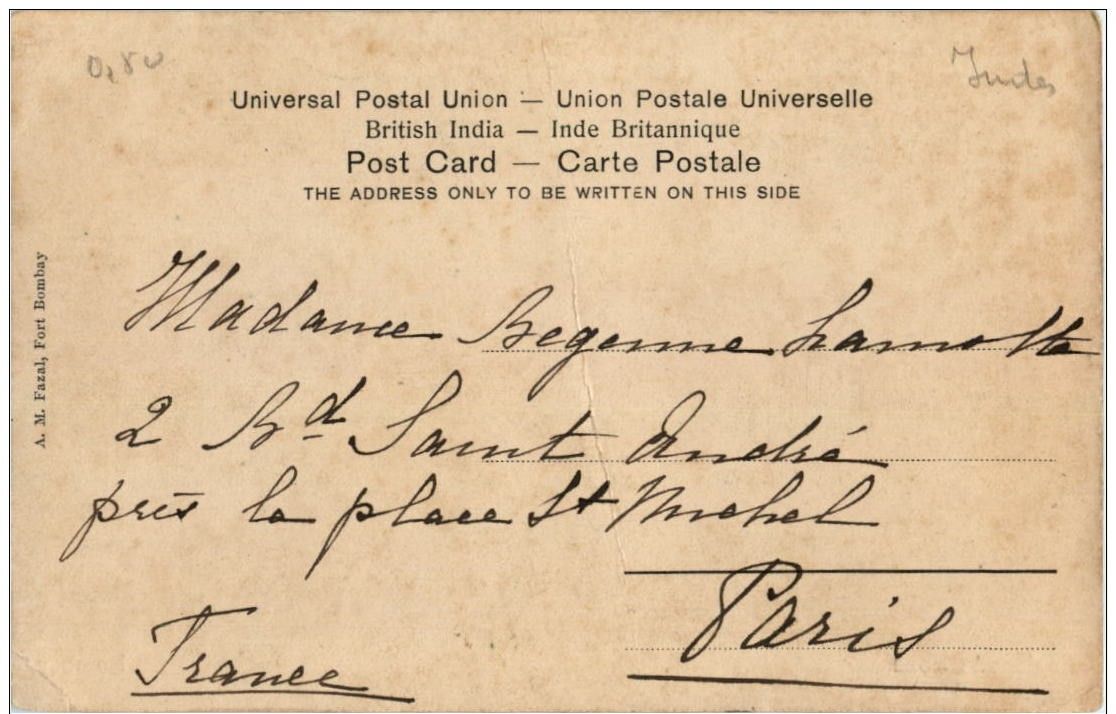 0,80
Indes
Universal Postal Union — Union Postale Universelle
British India — Inde Britannique
Post Card — Carte Postale
THE ADDRESS ONLY TO BE WRITTEN ON THIS SIDE
A. M. Fazal, Fort Bombay
Madame Begenne Lamotte
2 Bd Saint André
près la place St Michel
Paris
France